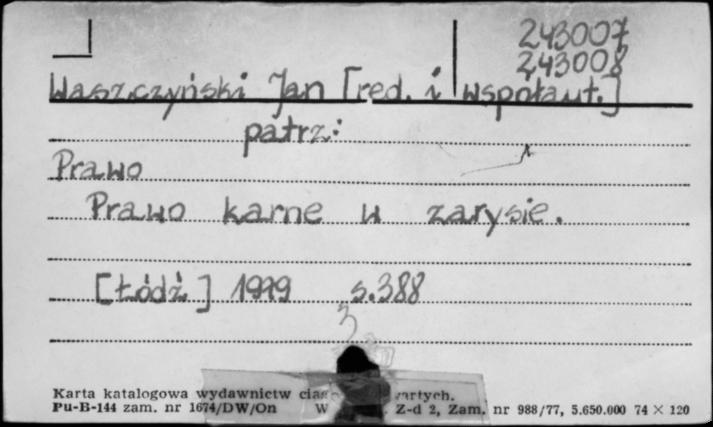 243007
243008
Waszczyński Jan [red. i współaut.]
patrz:
Prawo
Prawo karne w zarysie.
[Łódź] 1979 s.388
3
Karta katalogowa wydawnictw
Pu-B-144 zam. nr 1674/DW/On W Z-d 2, Zam. nr 988/77, 5.650.000 74 × 120